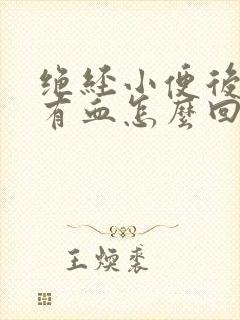 绝经小便後
有血怎麼回
王煥裘